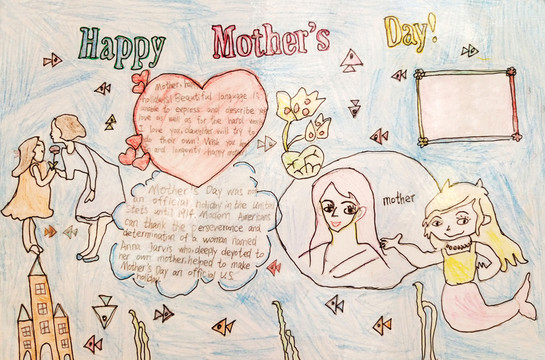 Happy Mother's Day!
Mother, ha
holidays! Beautiful language is
to express and describe
love as well as for the hard work
I love you, daughter will try to
do their own! Wish you
and happy mother
Mother's Day was not
an official holiday in the United
Stets until 1914. Modern Americans
can thank the perseverance and
determination of a woman named
Anna Jarvis who deeply devoted to
her own mother, helped to make
Mother's Day an official U.S.
holiday.
mother